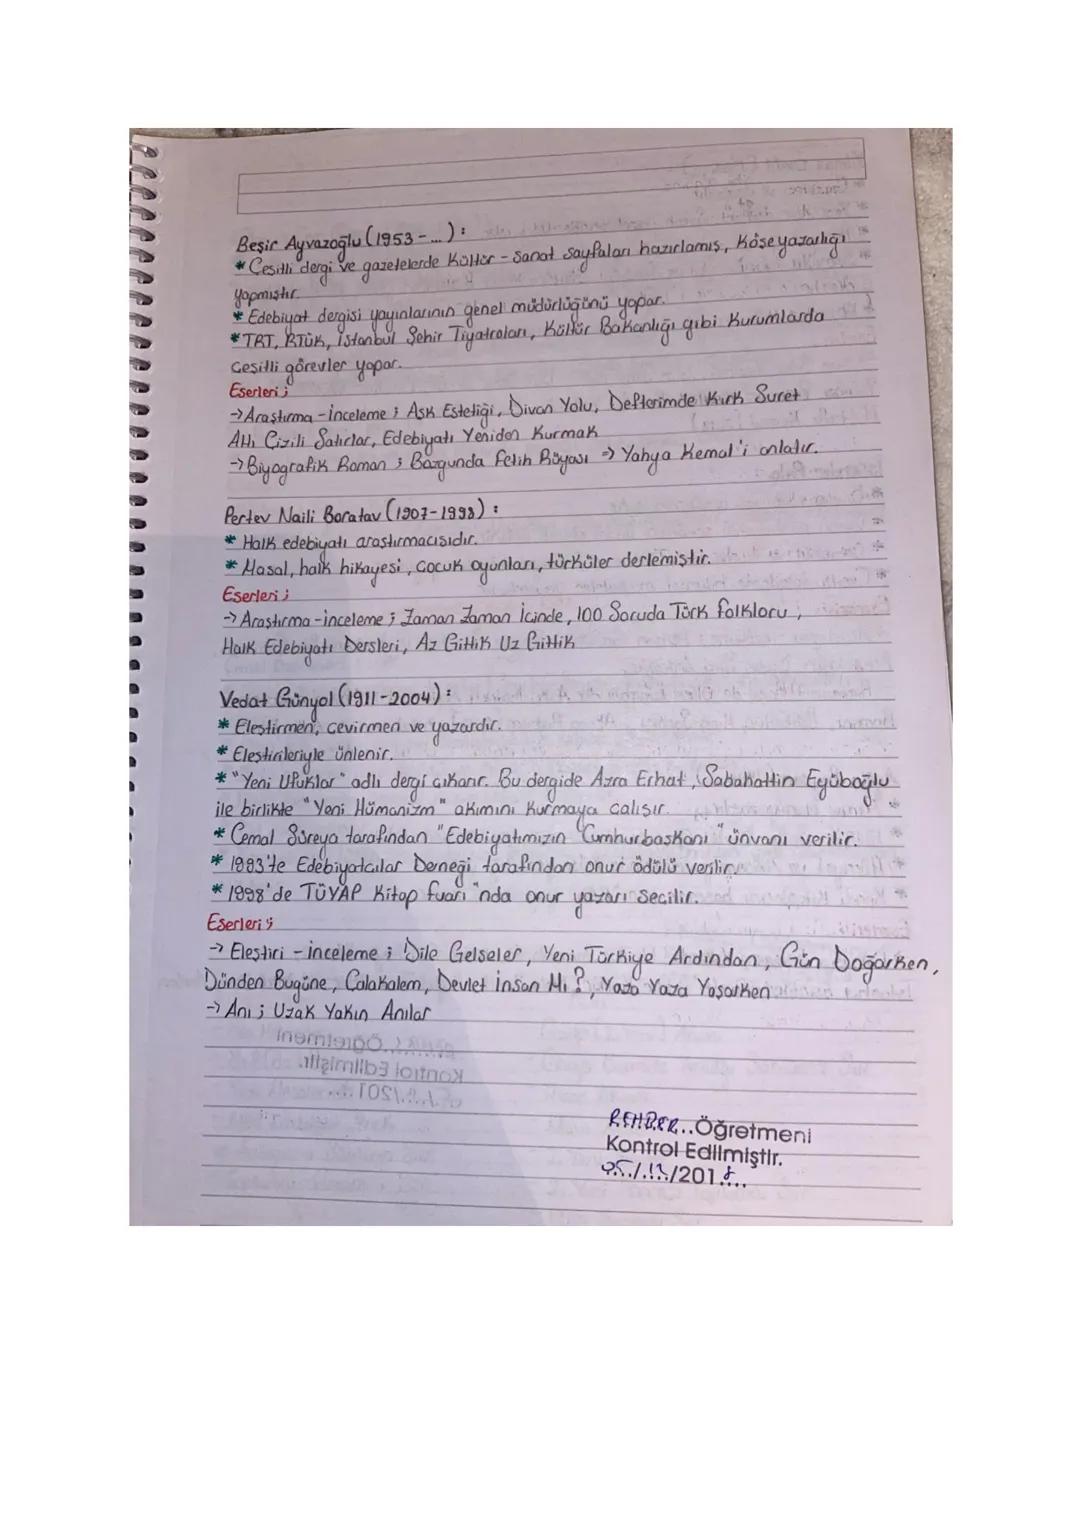 Beşir Ayvazoğlu (1953 - ...) :
* Çeşitli dergi ve gazetelerde kültür - sanat sayfaları hazırlamış, köşe yazarlığı
yapmıştır.
* Edebiyat dergisi yayınlarının genel müdürlüğünü yapar.
* TRT, RTÜK, İstanbul Şehir Tiyatroları, Kültür Bakanlığı gibi kurumlarda
çeşitli görevler yapar.
Eserleri ;
→ Araştırma - İnceleme ; Aşk Estetiği, Divan Yolu, Defterimde Kırk Suret
Altı Çizili Satırlar, Edebiyatı Yeniden Kurmak
→ Biyografik Roman ; Bozgunda Fetih Rüyası => Yahya Kemal'i anlatır.
Pertev Naili Boratav (1907-1998) :
* Halk edebiyatı araştırmacısıdır.
* Masal, halk hikayesi, çocuk oyunları, türküler derlemiştir.
Eserleri ;
→ Araştırma - inceleme ; Zaman Zaman İçinde, 100 Soruda Türk Folkloru,
Halk Edebiyatı Dersleri, Az Gittik Uz Gittik
Vedat Günyol (1911-2004) :
* Eleştirmen, çevirmen ve yazardır.
* Eleştirileriyle ünlenir.
* "Yeni Ufuklar" adlı dergi çıkarır. Bu dergide Azra Erhat, Sabahattin Eyüboğlu
ile birlikte "Yeni Hümanizm" akımını kurmaya çalışır.
* Cemal Süreya tarafından "Edebiyatımızın Cumhurbaşkanı" ünvanı verilir.
* 1993'te Edebiyatçılar Derneği tarafından onur ödülü verilir.
* 1998'de TÜYAP Kitap fuarı "nda onur yazarı seçilir.
Eserleri ;
→ Eleştiri - inceleme ; Dile Gelseler, Yeni Türkiye Ardından, Gün Doğarken,
Dünden Bugüne, Çalakalem, Devlet İnsan Mı ?, Yaza Yaza Yaşarken
→ Anı ; Uzak Yakın Anılar
REHBER..Öğretmeni
Kontrol Edilmiştir.